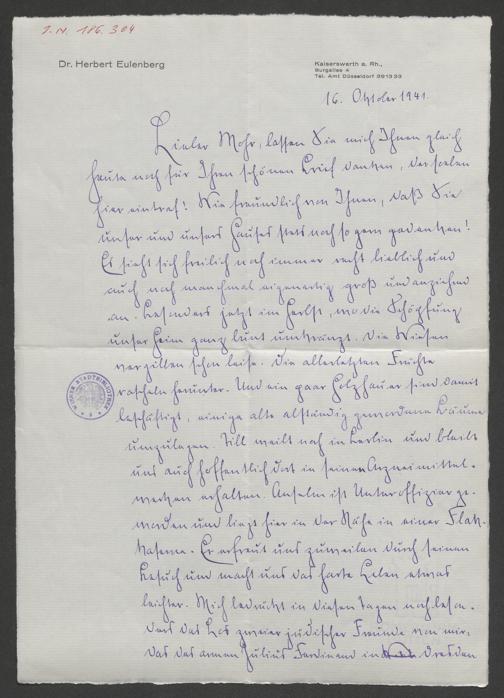 I.N. 186.304
Dr. Herbert Eulenberg
Kaiserswerth a. Rh.,
Burgallee 4
Tel. Amt Düsseldorf 391333
16. Oktober 1941.
Lieber Mohr, lassen Sie mich Ihnen gleich
heute noch für Ihren schönen Brief danken, der soeben
hier eintraf! Wie freundlich von Ihnen, daß Sie
unser und unsers Hauses stets noch so gern gedenken!
Es sieht sich freilich noch immer recht lieblich und
auch noch manchmal eigenartig groß und anziehend
an. Besonders jetzt im Herbst, wo die Schöpfung
unser Heim ganz bunt umkränzt. Die Wiesen
vergilben schon leise. Die allerletzten Früchte
rascheln herunter. Und ein paar Holzhauer sind damit
beschäftigt, einige alte altständig gewordene Bäume
umzulegen. Till weilt noch in Berlin und bleibt
uns auch hoffentlich dort in seinen Arzneimittel-
werken erhalten. Anselm ist Unteroffizier ge-
worden und liegt hier in der Nähe in einer Flak-
kaserne. Er erfreut uns zuweilen durch seinen
Besuch und macht uns das harte Leben etwas
leichter. Mich bedrückt in diesen Tagen noch beson-
ders das Los zweier jüdischer Freunde von mir,
das des armen Julius Ferdinand in Dresden
WIENER STADTBIBLIOTHEK